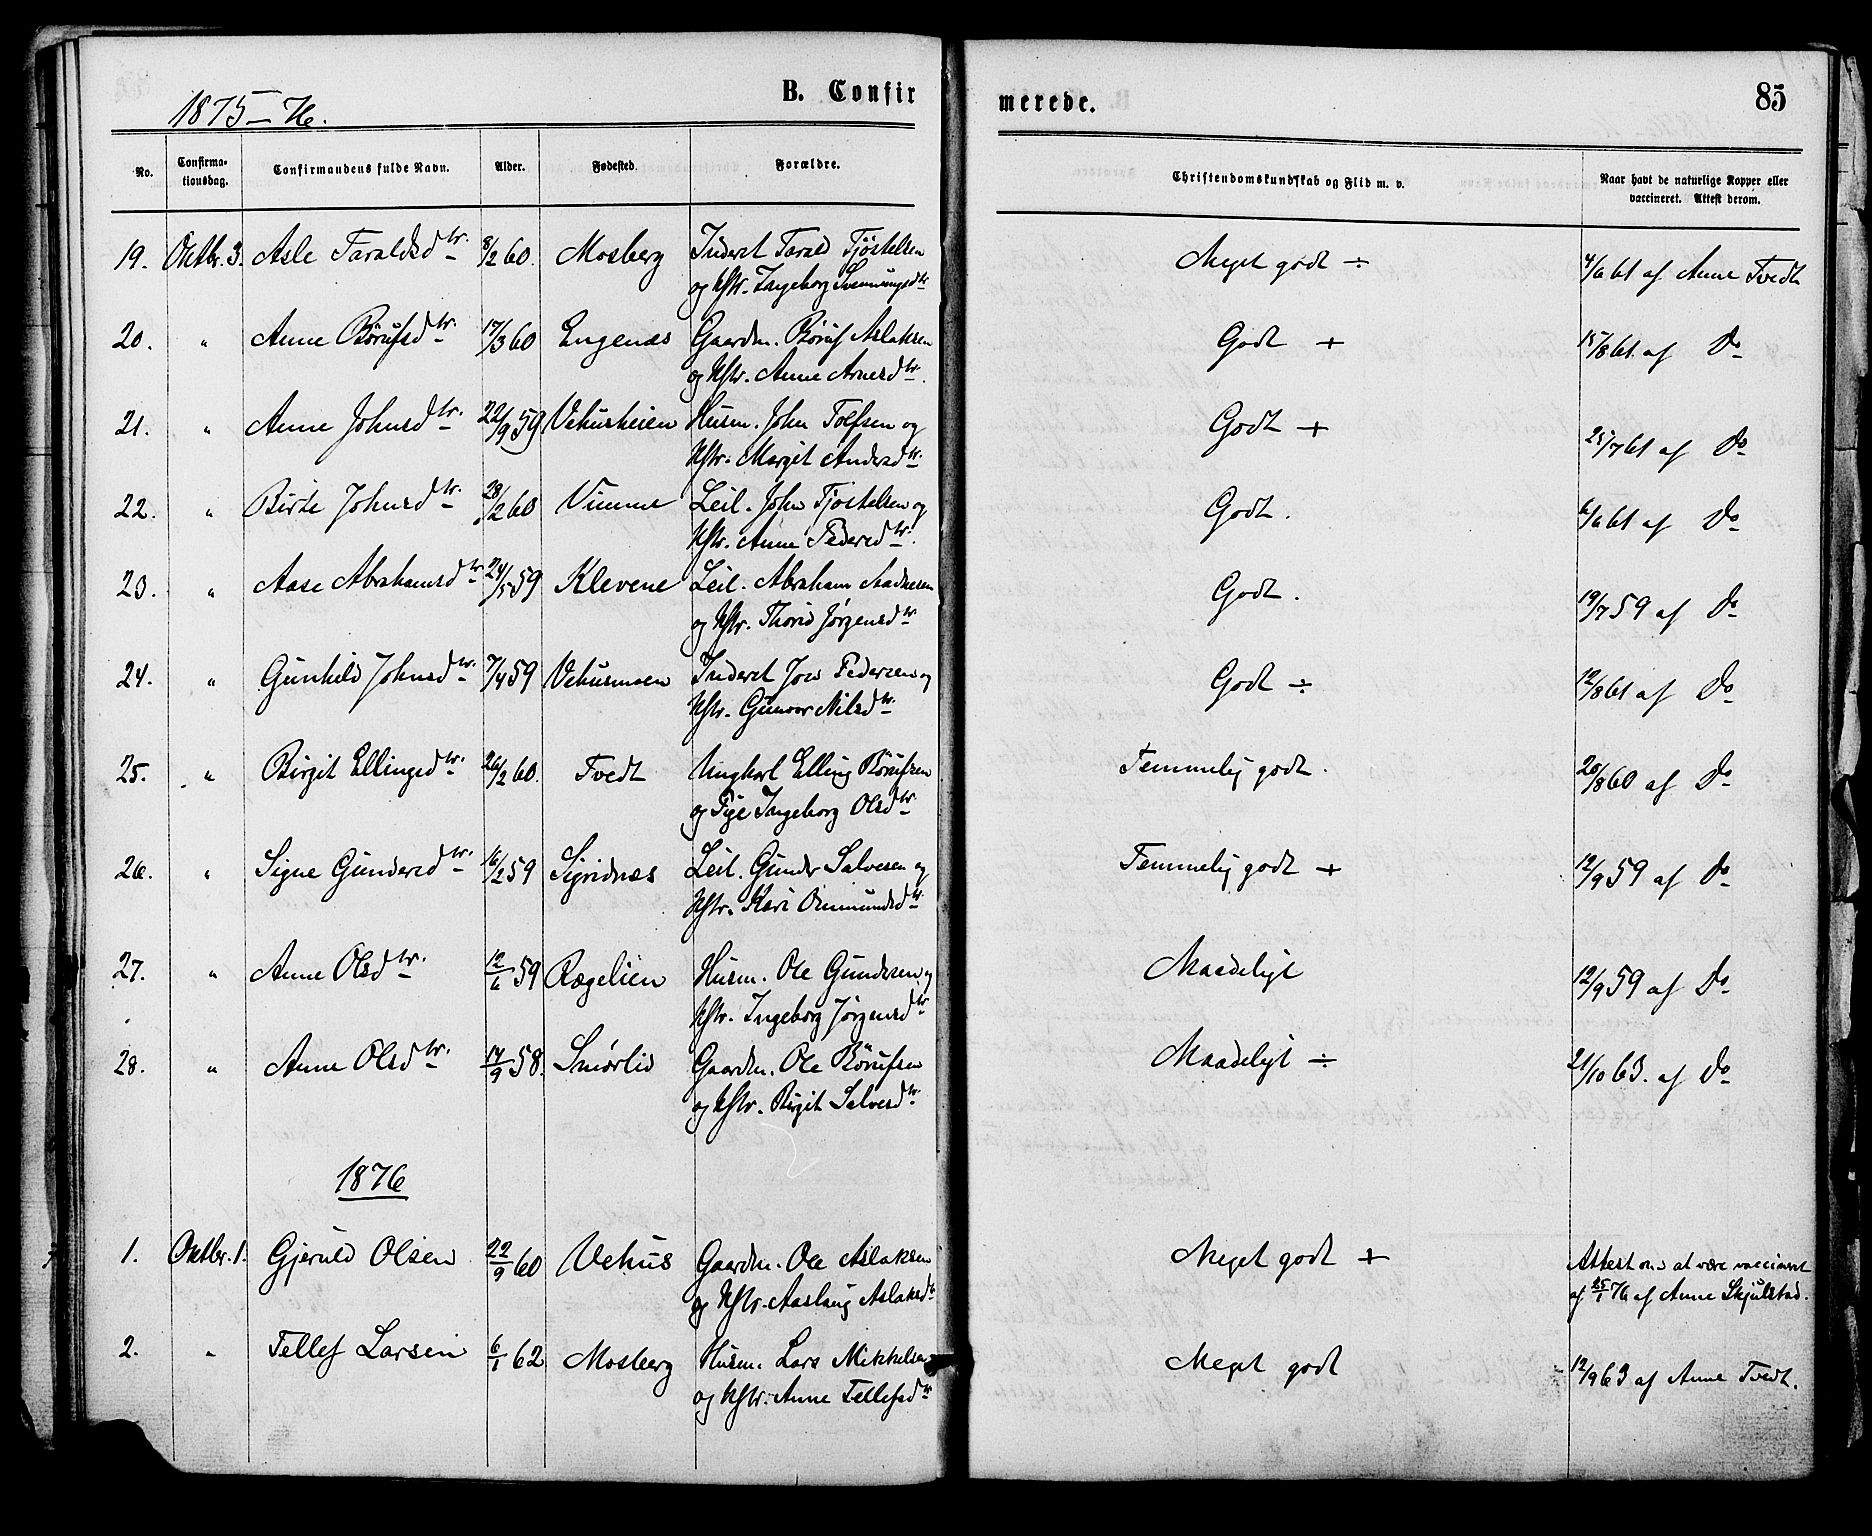 1875–76.
B. Confirmerede.
85
No. Confirmationsdag. Confirmandens fulde Navn. Alder. Fødested. Forældre. Christendomskundskab og Flid m. v. Naar havt de naturlige Kopper eller vaccineret. Attest derom.
19. Oktbr. 3. Asle Taraldsdtr. 8/2 60. Mosberg Inderst Tarald Tjøstelsen Meget godt ÷ 4/6 61 af Anne Tvedt
og Hstr. Ingeborg Svenningsdtr
20. " Anne Børufsdtr. 17/3 60 Engenæs Gaardm. Børuf Aslaksen Godt + 15/8 61. af Do
og Hstr. Anne Arnesdtr.
21. " Anne Johnsdtr. 22/9 59 Vehusheien Husm. John Tolfsen og Godt + 25/7 61 af Do
Hstr. Margit Andersdtr.
22. " Birte Johnsdtr. 28/2 60 Vimme Leil. John Tjøstelsen og Godt. 6/6 61 af Do
Hstr. Anne Pedersdtr.
23. " Aase Abrahamsdtr 24/5 59 Klevene Leil. Abraham Aadnesen Godt. 19/7 59 af Do
og Hstr. Thorid Jørgensdtr
24. " Gunhild Johnsdtr. 7/4 59 Vehusmoen Inderst Jon Pedersen og Godt ÷ 12/8 61 af Do
Hstr. Gunvor Nilsdtr.
25. " Birgit Ellingsdtr. 26/2 60. Tvedt Ungkarl Elling Børufsen Temmelig godt. 20/8 60 af Do
og Pige Ingeborg Olsdtr
26. " Signe Gundersdtr. 16/2 59 Sigridnæs Leil. Gunder Salvesen og Temmelig godt + 12/9 59 af Do
Hstr. Kari Ommundsdtr
27. " Anne Olsdtr. 12/6 59 Rægelien Husm. Ole Gundersen og Maadeligt 12/9 59 af Do
Hstr. Ingeborg Jørgensdtr
28. " Anne Olsdtr. 17/9 58. Smørlid Gaardm. Ole Børufsen Maadeligt ÷ 21/10 63. af Do
og Hstr. Birgit Salvesdtr.
1876
1. Oktbr. 1. Gjeruld Olsen 22/9 60 Vehus Gaardm. Ole Aslaksen Meget godt + Attest om at være vaccineret
og Hstr. Aaslaug Aslaksdtr af 25/1 76 af Anne Skjulstad.
2. " Tellef Larsen 6/1 62 Mosberg Husm. Lars Mikkelsen Meget godt 12/9 63 af Anne Tvedt.
og Hstr. Anne Tellefsdtr